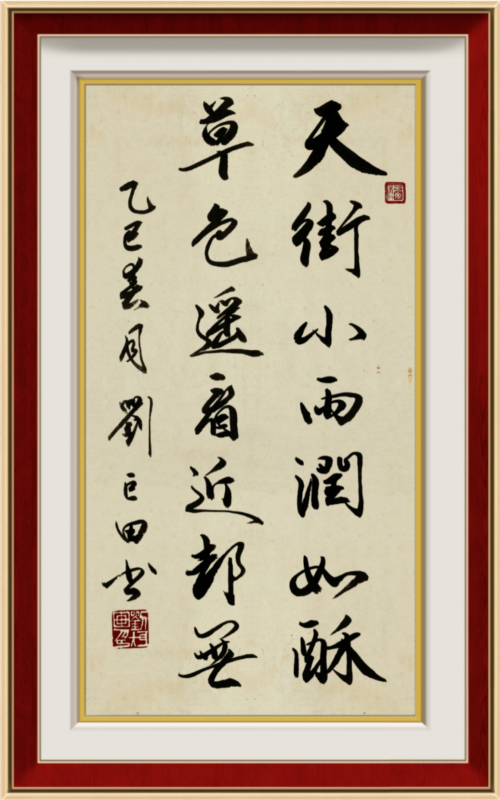 天街小雨潤如酥
草色遥看近却無
乙巳春月劉巨田书